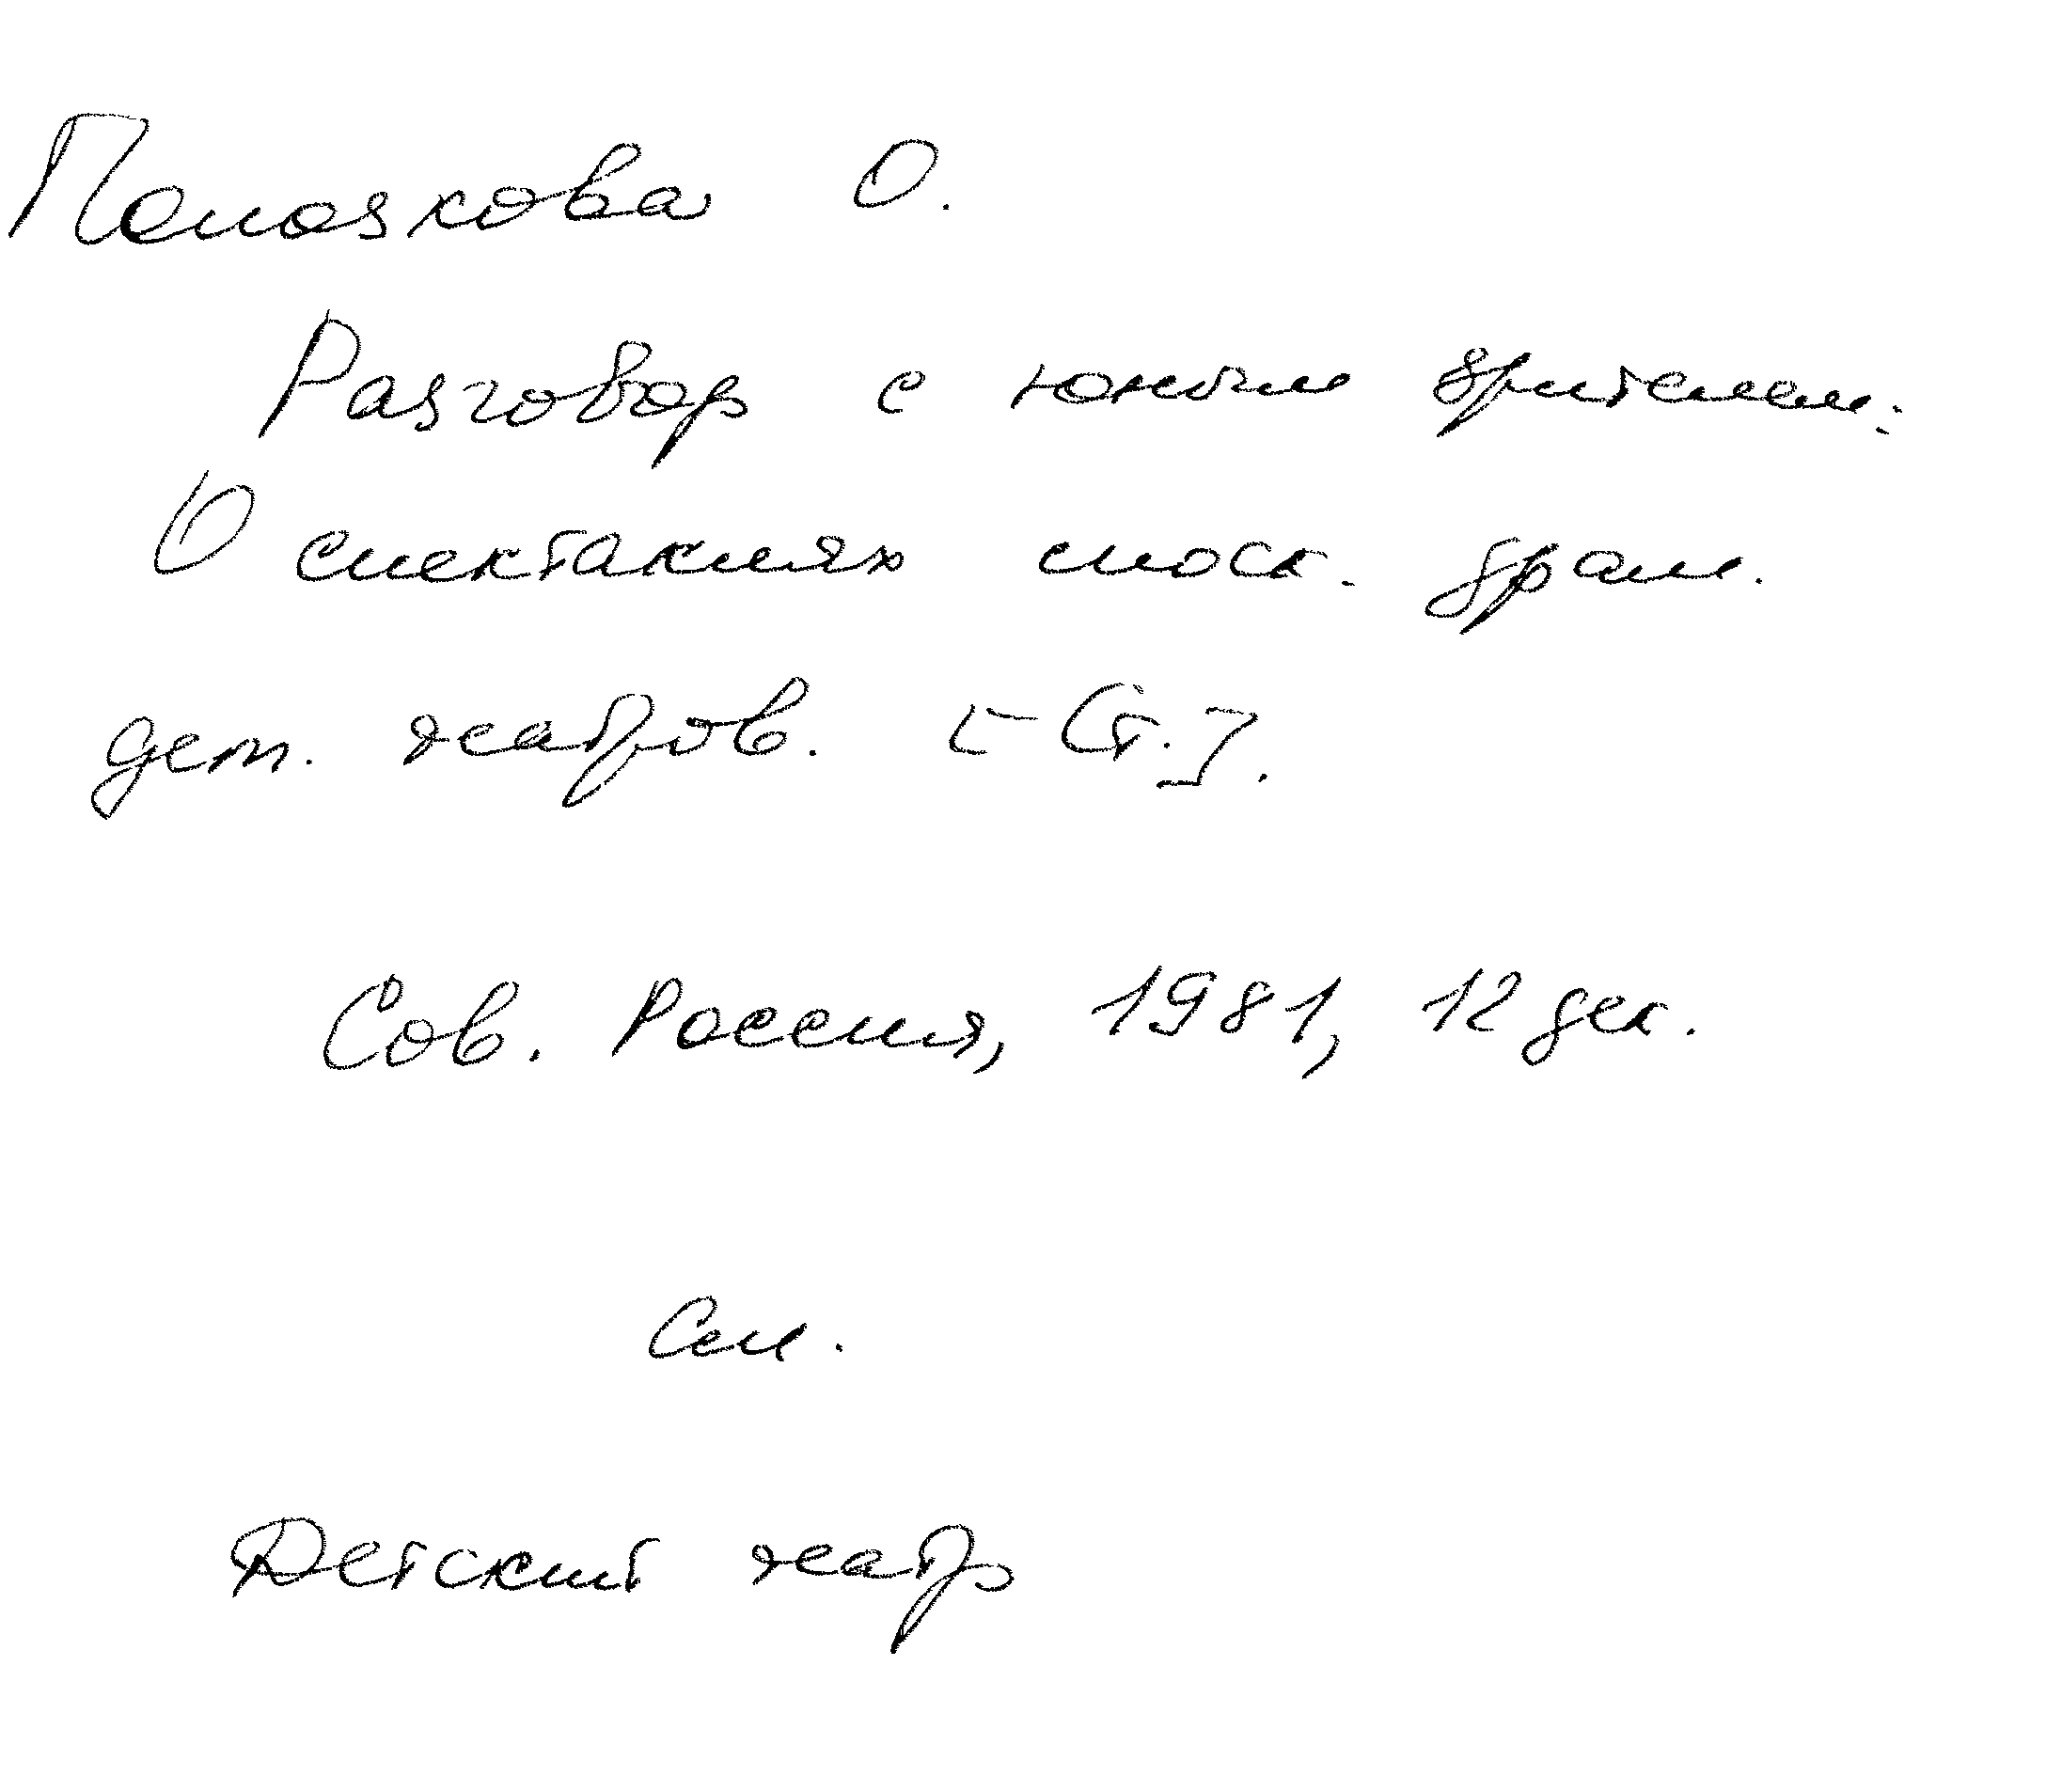 Полозкова О.
Разговор с юным зрителем:
О спектаклях моск. драм.
дет. театров. [Ст.].
Сов. Россия, 1981, 12 дек.
См.
Детский театр